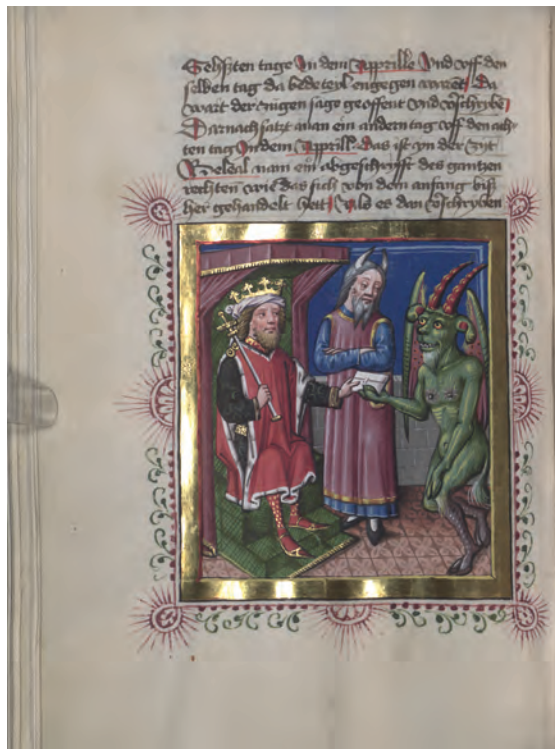 Sehszten tage In dem Apprille Vnd vff den
selben tag da bede teyl engegen warēt Da
wart der zùgen sage geoffent vnd v̄schrybē
Darnach satzt man ein andern tag vff den ach-
ten tag In dem Apprill Das ist yn der zyt
Beleal nam ein abgeschryfft des gantzen
rechten wie das sich von dem anfang biß
her gehandelt hett Als es dan v̄schryben